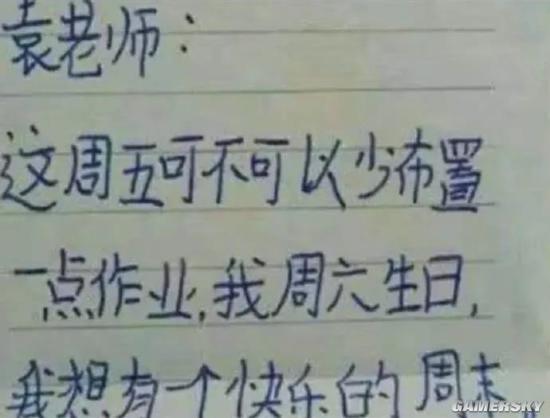 袁老师：
这周五可不可以少布置
一点作业,我周六生日,
我想有一个快乐的周末
GAMERSKY